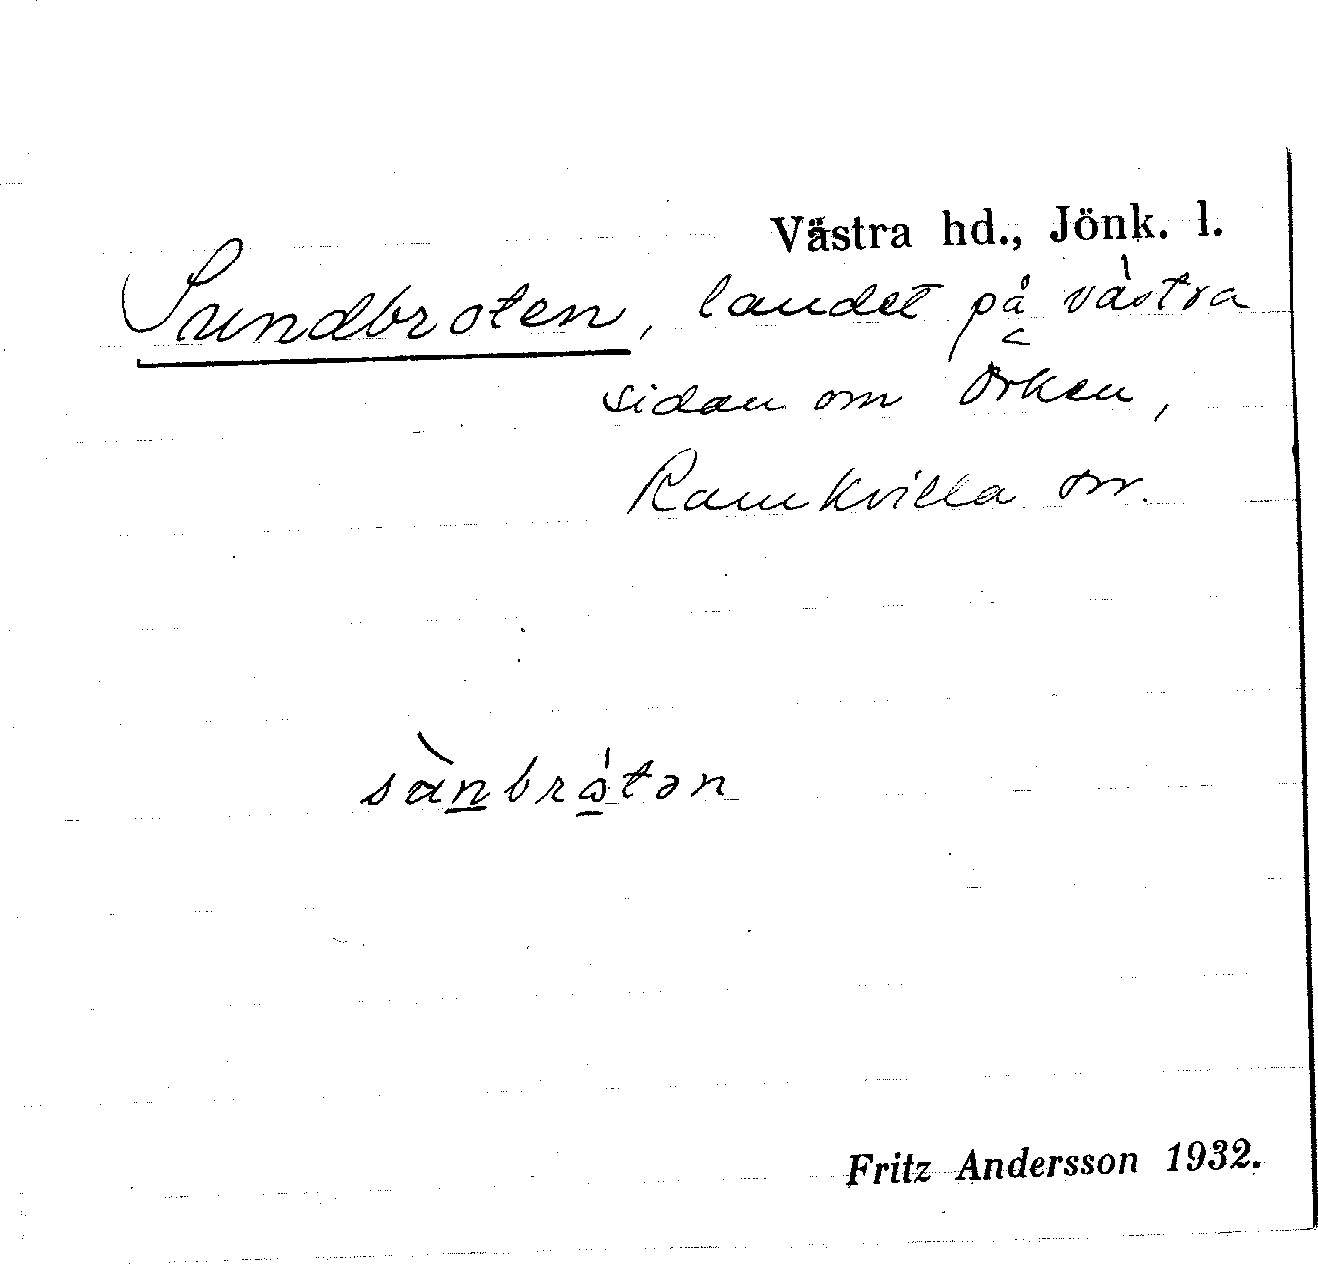 Västra hd., Jönk. l.
Sundbroten, landet på västra
sidan om Örken,
Ramkvilla sn.
sànbrǻtən
Fritz Andersson 1932.